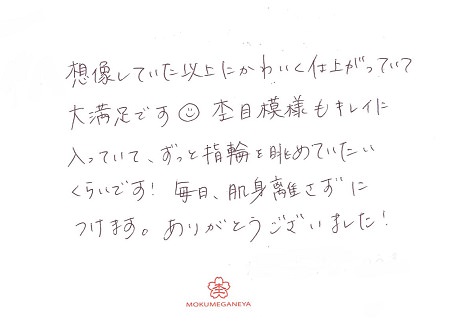 想像していた以上にかわいく仕上がっていて
大満足です☺ 杢目模様もキレイに
入っていて、ずっと指輪を眺めていたい
くらいです！ 毎日、肌身離さずに
つけます。ありがとうございました！
杢
MOKUMEGANEYA